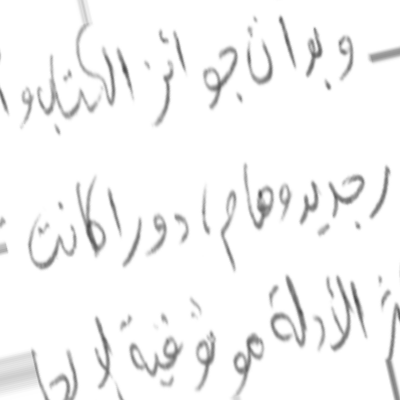 وبدان جوائز الكتاب و
جديد وهام، دورا كانت
الأدلة موثوقية لا